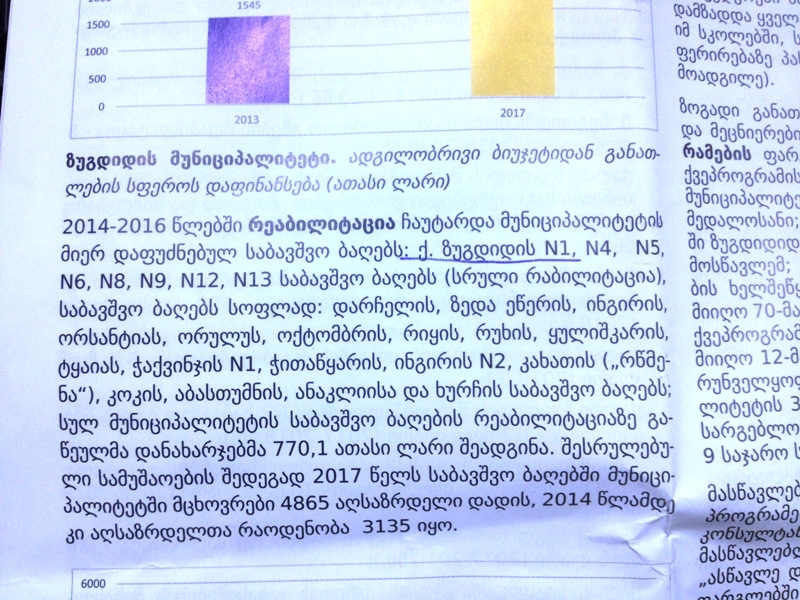 1545
1500
1000
500
0
2013
2017
ზუგდიდის მუნიციპალიტეტი. ადგილობრივი ბიუჯეტიდან განათ-
ლების სფეროს დაფინანსება (ათასი ლარი)
2014-2016 წლებში რეაბილიტაცია ჩაუტარდა მუნიციპალიტეტის
მიერ დაფუძნებულ საბავშვო ბაღებს: ქ. ზუგდიდის N1, N4, N5,
N6, N8, N9, N12, N13 საბავშვო ბაღებს (სრული რაბილიტაცია),
საბავშვო ბაღებს სოფლად: დარჩელის, ზედა ეწერის, ინგირის,
ორსანტიას, ორულუს, ოქტომბრის, რიყის, რუხის, ყულიშკარის,
ტყაიას, ჭაქვინჯის N1, ჭითაწყარის, ინგირის N2, კახათის („რწმე-
ნა“), კოკის, აბასთუმნის, ანაკლიისა და ხურჩის საბავშვო ბაღებს;
სულ მუნიციპალიტეტის საბავშვო ბაღების რეაბილიტაციაზე გა-
წეულმა დანახარჯებმა 770,1 ათასი ლარი შეადგინა. შესრულებუ-
ლი სამუშაოების შედეგად 2017 წელს საბავშვო ბაღებში მუნიცი-
პალიტეტში მცხოვრები 4865 აღსაზრდელი დადის, 2014 წლამდე
კი აღსაზრდელთა რაოდენობა 3135 იყო.
6000
დამზადდა ყველ
იმ სკოლებში, ს
ფერირებაზე პას
მოადგილე).
ზოგადი განათ
და მეცნიერები
რამების ფარ
ქვეპროგრამის
მუნიციპალიტე
მედალოსანი;
ში ზუგდიდიდ
მოსწავლემ;
ბის ხელშეწყ
მიიღო 70-მა
ქვეპროგრამ
მიიღო 12-მ
რუნველყოფ
ლიტეტის 3
სარგებლო
9 საჯარო ს
მასწავლებ
პროგრამე
კონსულტან
მასწავლებლ
„ასწავლე დ